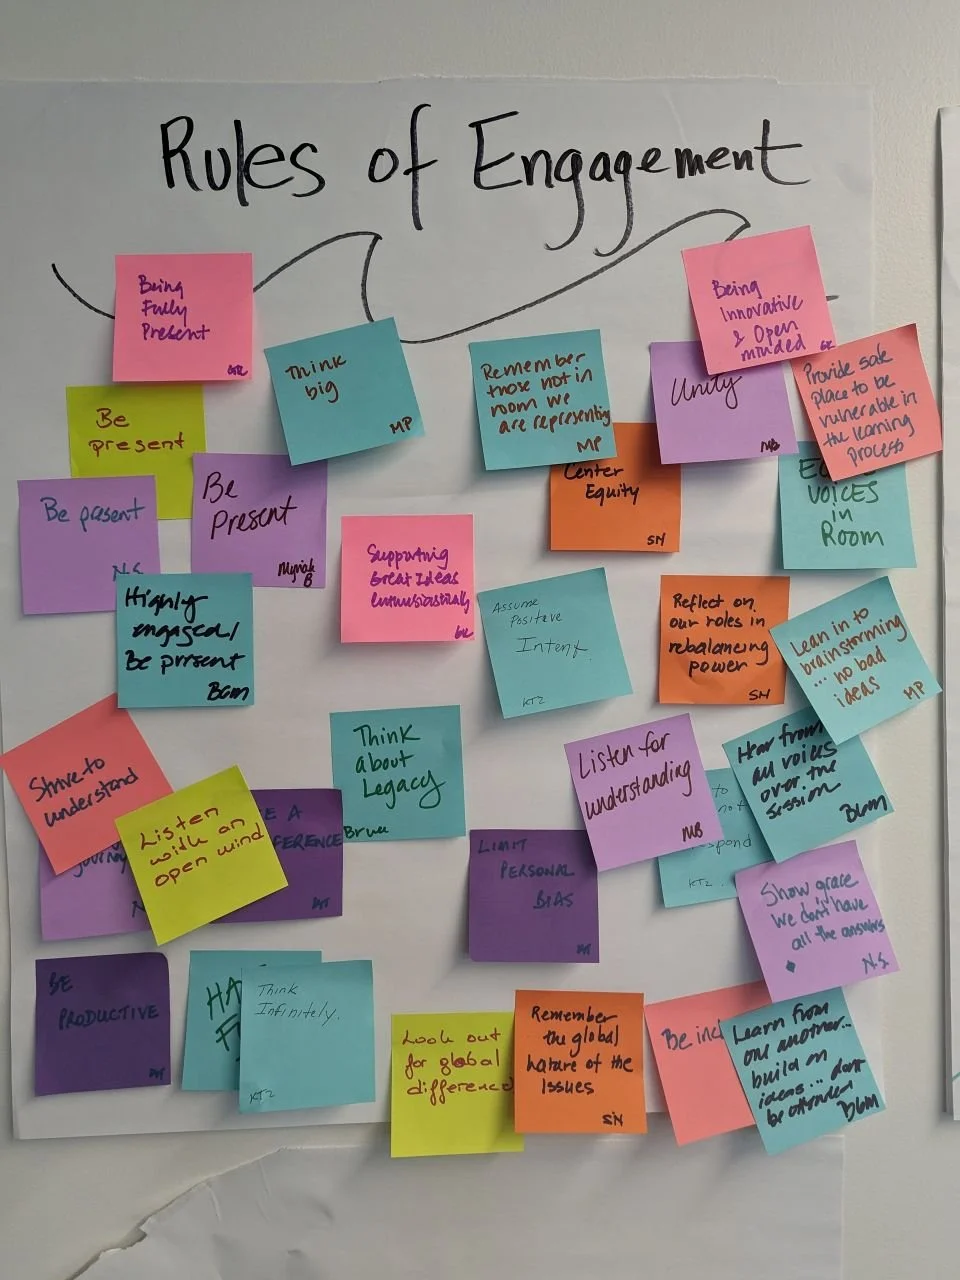 Rules of Engagement
Being
Fully
Present
Being
Innovative
& Open
minded
Think
big
MP
Remember
those not in
room we
are representing
MP
Unity
MB
Provide safe
place to be
vulnerable in
the learning
process
Be
present
Be present
N.S.
Be
Present
Myriah
B
Center
Equity
SN
VOICES
in
ROOM
Supporting
Great Ideas
Enthusiastically
Highly
engaged/
Be present
Assume
Positive
Intent.
KTZ
Reflect on
our roles in
rebalancing
power
SN
Lean in to
brainstorming
... no bad
ideas
MP
Strive to
understand
Think
about
Legacy
Listen for
understanding
MB
Hear from
all voices
over the
session
Listen
with an
open wind
E A
FERENCE
LIMIT
PERSONAL
BIAS
to
not
spond
KTZ
Show grace
We don't have
all the answers
N.S.
BE
PRODUCTIVE
HA
F
Think
Infinitely.
KTZ
Look out
for global
difference
Remember
the global
nature of the
issues
SN
Be incl
Learn from
one another...
build on
ideas... don't
be offended